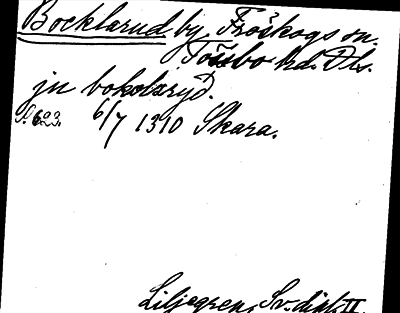 Bocklarud by, Fröskogs sn.
Tössbo hd. Dls.
jn bokolaryd.
S. 623. 6/7 1310 Skara.
Liljegren, Sv. dipl. II.